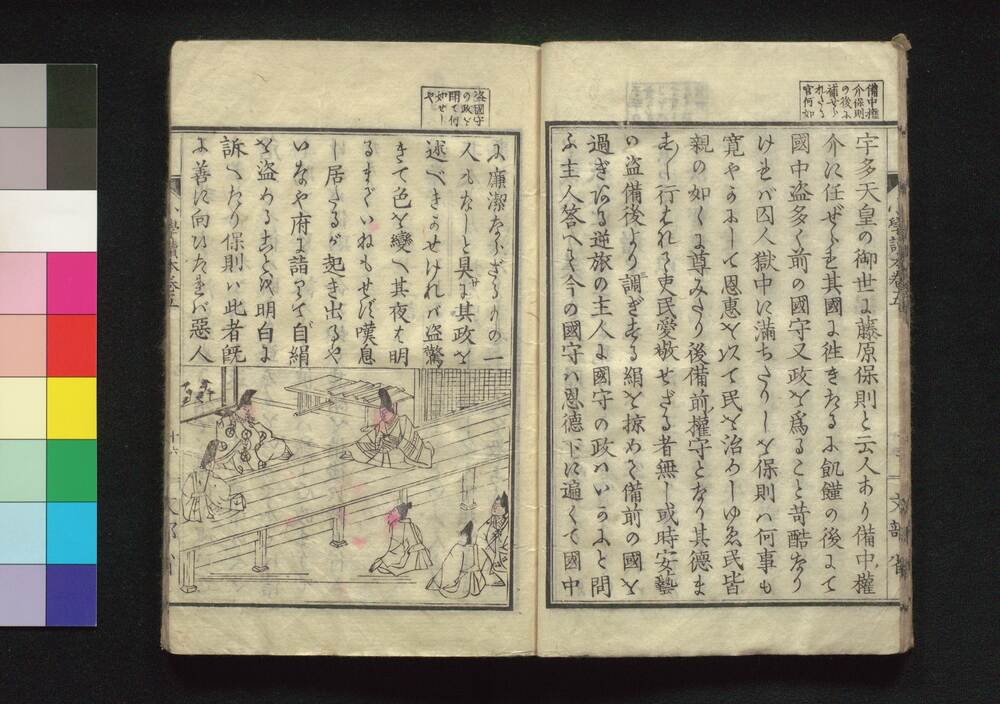 備中權
介保則
の後に
補せら
れたる
官何如
宇多天皇の御世に藤原保則と云人あり備中權
介に任ぜられ其國に徃きたるに飢饉の後にて
國中盗多く前の國守又政を爲ること苛酷なり
ければ囚人獄中に滿ちたりしを保則ハ何事も
寛やかにして恩惠を以て民を治めしゆゑ民皆
親の如くに尊みたり後備前權守となり其德ま
た行はれて吏民愛敬せざる者無し或時安藝
の盗備後より調ぎたる絹を掠めて備前の國を
過ぎける逆旅の主人に國守の政ハいかにと問
ふ主人答へて今の國守ハ恩德下に遍くて國中
盗國守
の政を
聞て何
如せし
や
に廉潔ならざるもの一
人もなしと具に其政を
述べきかせければ盗驚
きて色を變へ其夜は明
るまでいねもせず嘆息
し居たるが起き出るや
いなや府に詣りて自絹
を盗めることを明白に
訴へたり保則ハ此者既
に善に向ひたれば惡人
小學讀本卷五
十六
文部省